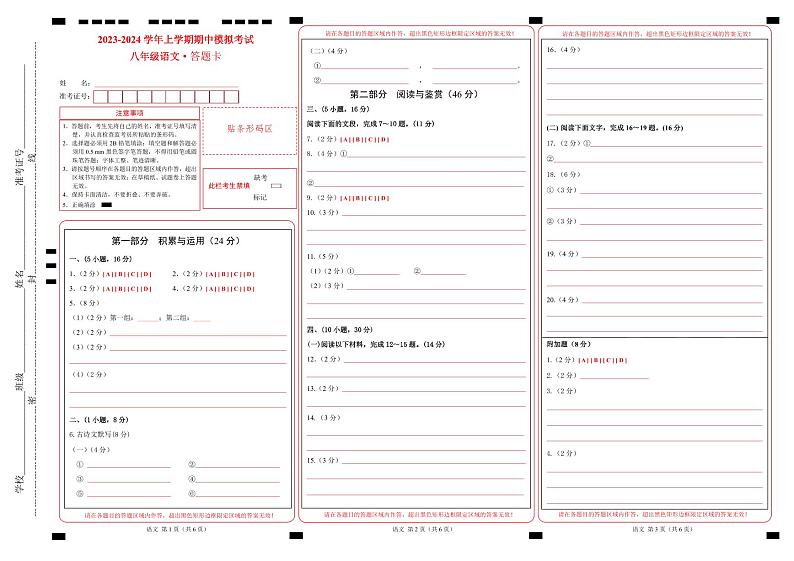 学校
班级
姓名
准考证号
密
封
线
2023-2024 学年上学期期中模拟考试
八年级语文·答题卡
姓 名：
准考证号：
注意事项
1．答题前，考生先将自己的姓名，准考证号填写清
楚，并认真检查监考员所粘贴的条形码。
2．选择题必须用2B 铅笔填涂；填空题和解答题必
须用0.5 mm 黑色签字笔答题，不得用铅笔或圆
珠笔答题；字体工整、笔迹清晰。
3．请按题号顺序在各题目的答题区域内作答，超出
区域书写的答案无效；在草稿纸、试题卷上答题
无效。
4．保持卡面清洁，不要折叠、不要弄破。
5．正确填涂
贴条形码区
此栏考生禁填
缺考
标记
第一部分 积累与运用（24 分）
一、(5 小题，16 分)
1．（2 分）[A] [B] [C] [D] 2．（2 分）[A] [B] [C] [D]
3．（2 分）[A] [B] [C] [D] 4．（2 分）[A] [B] [C] [D]
5．（8 分）
（1）（2 分）第一组：______；第二组：____
（2）（2 分）
（3）（2 分）
（4）（2 分）
二、（1 小题，8 分）
6.古诗文默写(8 分)
（一）（4 分）
① ②
③ ④
⑤ ⑥
请在各题目的答题区域内作答，超出黑色矩形边框限定区域的答案无效！
语文 第 1 页（共 6 页）
请在各题目的答题区域内作答，超出黑色矩形边框限定区域的答案无效！
（二）（4 分）
① ， 。
② ， 。
第二部分 阅读与鉴赏（46 分）
三、(5 小题，16 分)
阅读下面的文段，完成 7～10 题。(11 分)
7.（2 分）[A] [B] [C] [D]
8.（4 分）①
②
9.（2 分）[A] [B] [C] [D]
10.（3 分）
11.（5 分）
（1）（2 分）① ②
（2）（3 分）
四、(10 小题，30 分)
(一)阅读以下材料，完成 12～15 题。(14 分)
12.（2 分）
13.（2 分）
14.（3 分）
15.（3 分）
请在各题目的答题区域内作答，超出黑色矩形边框限定区域的答案无效！
语文 第 2 页（共 6 页）
请在各题目的答题区域内作答，超出黑色矩形边框限定区域的答案无效！
16.（4 分）
(二) 阅读下面文字，完成 16～19 题。(16 分)
17.（2 分）①
②
18.（6 分）
①（3 分）
②（3 分）
19.（4 分）
20.（4 分）
附加题（8 分）
1.（2 分）[A] [B] [C] [D]
2.（2 分）
3.（2 分）
4.（2 分）
请在各题目的答题区域内作答，超出黑色矩形边框限定区域的答案无效！
语文 第 3 页（共 6 页）